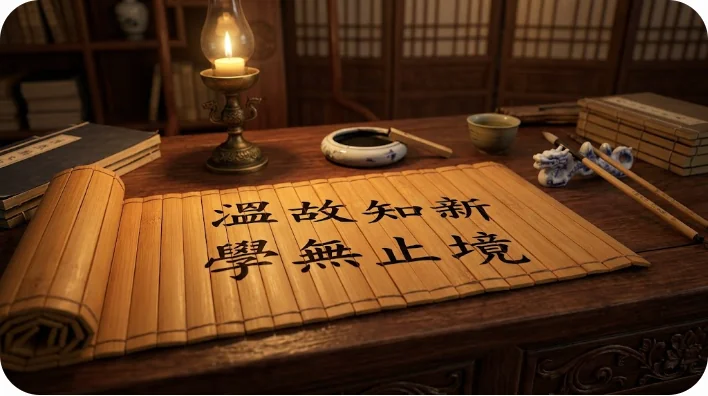 溫故知新
學無止境